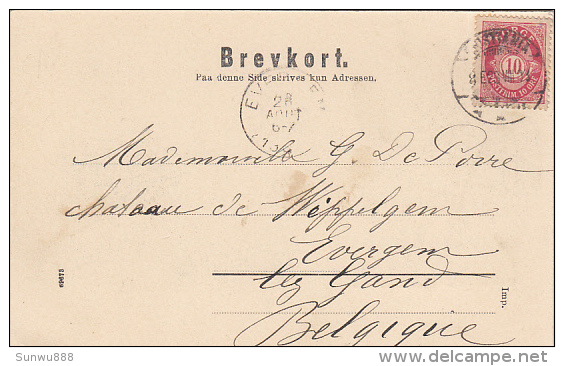 Brevkort.
Paa denne Side skrives kun Adressen.
NORGE
10
POSTFRIM. 10 ØRE
28
AOUT
6-7
Mademoiselle G. De Porre
chateau de Wippelgem
Evergem
lez Gand
Belgique
69675
Imp.
Sunwu888
www.delcampe.net